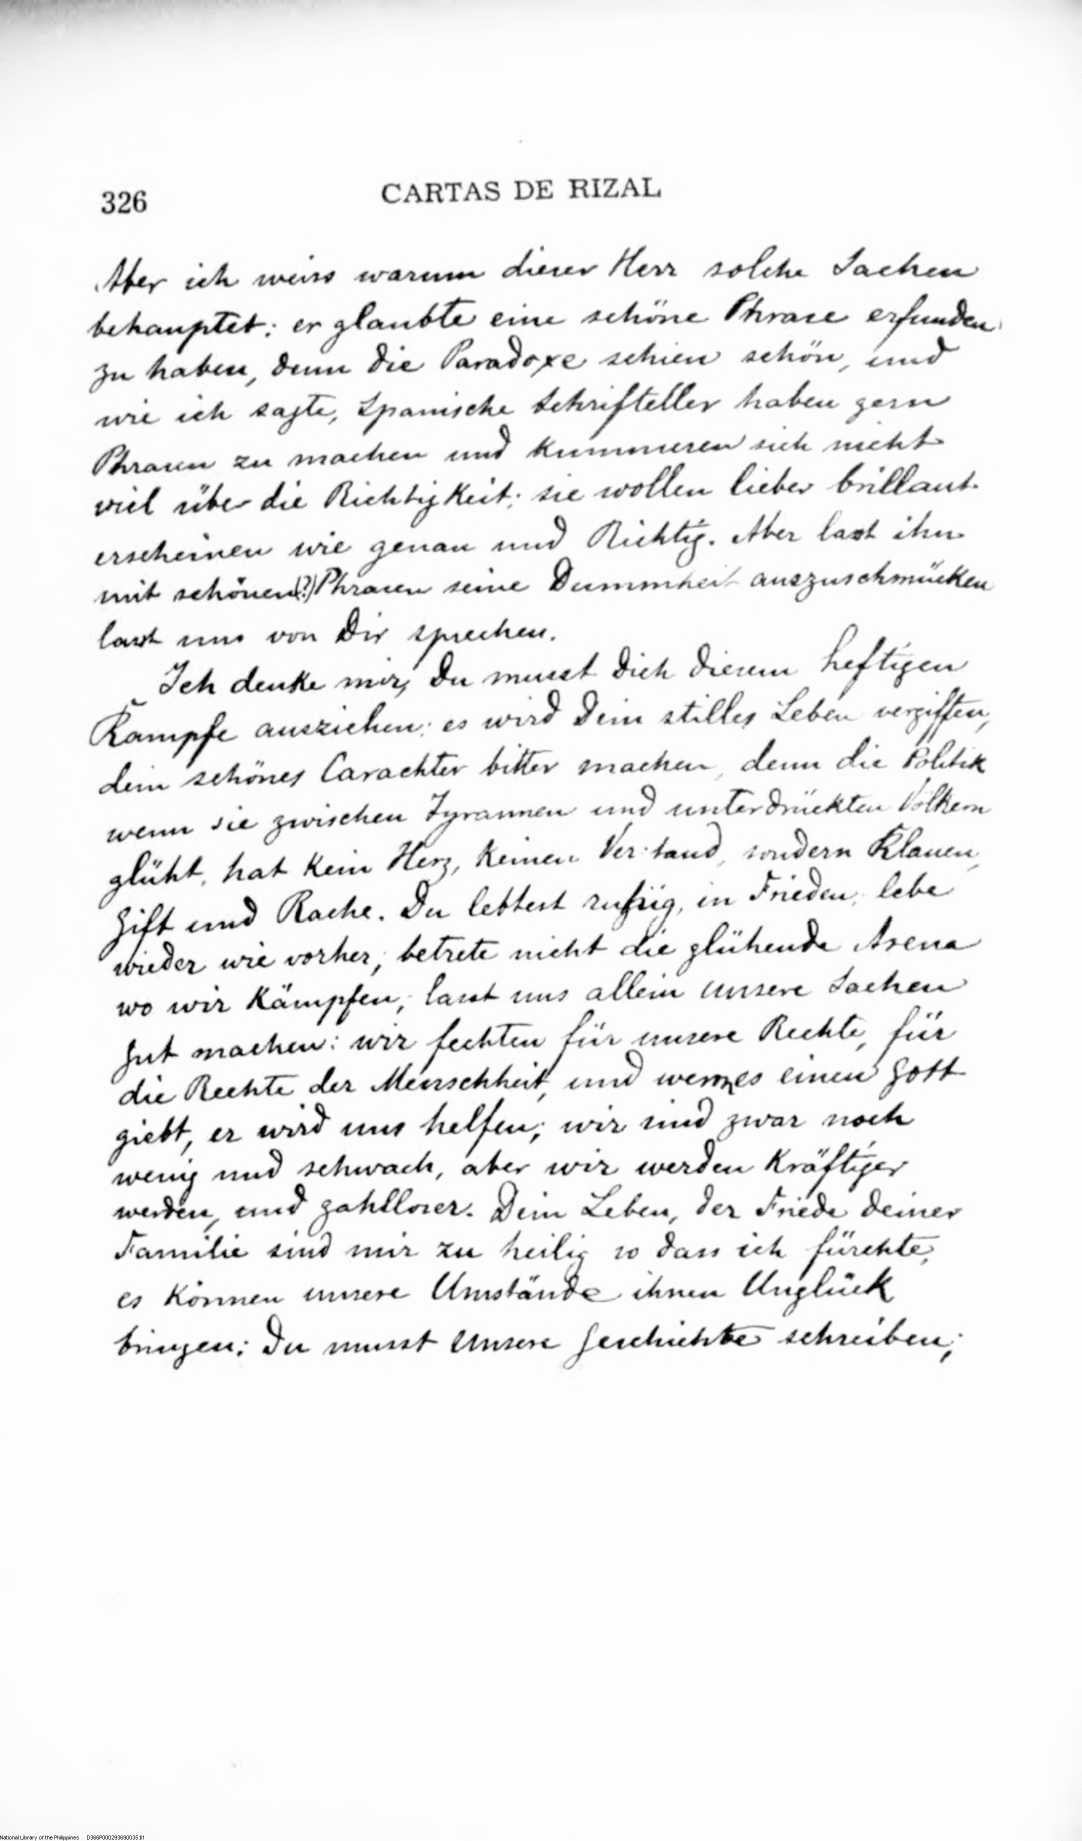 326
CARTAS DE RIZAL
Aber ich weiss warum dieser Herr solche Sachen
behauptet: er glaubte eine schöne Phrase erfunden
zu haben, denn die Paradoxe schien schön, und
wie ich sagte, Spanische Schrifteller haben gern
Phrasen zu machen und kummeren sich nicht
viel über die Richtigkeit; sie wollen lieber brillant
erscheinen wie genau und Richtig. Aber lasst ihn
mit schönen(?) Phrasen seine Dummheit auszuschmücken
lasst uns von Dir sprechen.
Ich denke mir, Du musst Dich diesem heftigen
Kampfe ausziehen; es wird Dein stilles Leben vergiften,
dein schönes Carachter bitter machen, denn die Politik
wenn sie zwischen Tyrannen und unterdrückten Völkern
glüht, hat kein Herz, keinen Verstand, sondern Klauen,
Gift und Rache. Du lebtest ruhig, in Frieden; lebe
wieder wie vorher; betrete nicht die glühende Arena
wo wir Kämpfen; lasst uns allein unsere Sachen
gut machen: wir fechten für unsere Rechte, für
die Rechte der Menschheit, und wenn es einen Gott
giebt, er wird uns helfen; wir sind zwar noch
wenig und schwach, aber wir werden Kräftiger
werden, und zahlloser. Dein Leben, der Friede deiner
Familie sind mir zu heilig so dass ich fürchte,
es können unsere Umstände ihnen Unglück
bringen; Du musst unsere Geschichte schreiben;
National Library of the Philippines